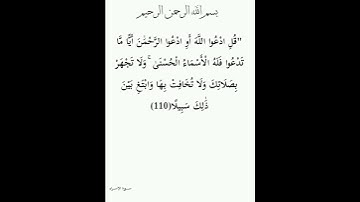 بسم الله الرحمن الرحيم
"قُلِ ادْعُوا اللَّهَ أَوِ ادْعُوا الرَّحْمَٰنَ أَيًّا مَّا
تَدْعُوا فَلَهُ الْأَسْمَاءُ الْحُسْنَىٰ ۚ وَلَا تَجْهَرْ
بِصَلَاتِكَ وَلَا تُخَافِتْ بِهَا وَابْتَغِ بَيْنَ
ذَٰلِكَ سَبِيلًا(110)